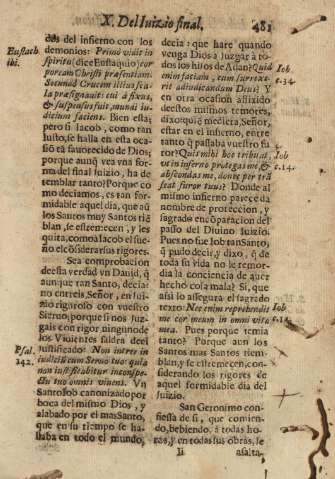 X. Del Iuizio final,
481
des del infierno con los
demonios: Primò viait in
spiritu (dice Eustaquio) cor
poream Christi præsentiam.
Secundò Crucem illius sca
la præsignauit: cui à fixus,
& suspensus fuit, mundi iu-
dicium faciens. Bien esta;
pero si Iacob, como tan
Iusto, se halla en esta oca
siõ tã fauorecido de Dios;
porque aunq̃ vea vna for-
ma del final Iuizio, ha de
temblar tanto? Porque co
mo deciamos, es tan for-
midable aquel dia, que aũ
los Santos muy Santos tiē
blan, se estremecen, y les
quita, como à Iacob el sue-
ño el cõsiderar sus rigores.
Sea comprobacion
desta verdad vn Dauid, q̃
aunque tan Santo, decia:
no entreis Señor, en Iui-
zio riguroso con vuestro
Sieruo; porque si nos Iuz-
gais con rigor, ninguno de
los Viuientes saldrà dcel
Iustificado: Non intres in
iudicium cum Seruo tuo: quia
non iustificabitur in conspe-
ctu tuo omnis viuens. Vn
Santo Iob canonizado por
boca del mismo Dios, y
alabado por el mas Santo,
que en su tiempo se ha-
llaba en todo el mundo,
Eustach.
ibi.
Psal.
142.
decia: que harè quando
venga Dios à Iuzgar à to-
dos los hijos de Adan? Quid
enim faciam, cum surrexe-
rit ad iudicandum Deus? Y
en otra ocasion afligido
destos mismos temores,
dixo: quiẽ me diera Señor,
estar en el infierno, entre
tanto q̃ passaba vuestro fu
ror? Quis mihi hoc tribuat,
vt in inferno protegas me, &
abscondas me, donec per trã
seat furor tuus? Donde al
mismo infierno parece dà
nombre de proteccion, y
sagrado en cõparacion del
passo del Diuino Iuizio.
Pues no fue Iob tan Santo,
q̃ pudo decir, y dixo, q̃ de
toda su vida no le remor-
dia la conciencia de auer
hecho cosa mala? Si, que
assi lo assegura el sagrado
texto: Nec enim reprehendit
me cor meum in omni vita
mea. Pues porque temia
tanto? Porque aun los
Santos mas Santos tiem-
blan, y se estremecen, con-
siderando los rigores de
aquel formidable dia del
Iuizio.
San Geronimo con-
fiessa de si, que comien-
do, bebiendo, à todas ho-
ras, y en todas sus obras, le
Ii
asalta-
Iob.
c.34.
Iob
c.14.
Iob